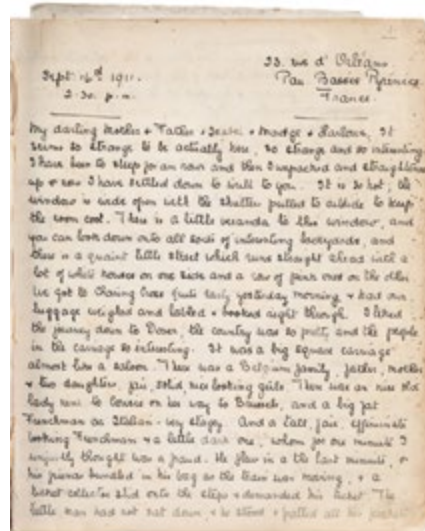 33. rue d' Orléans
Sept. 16th 1911.
Pau Basses Pyrenees
2.30. p.m.
France.
My darling Mother & Father & & Madge & It
seems so strange to be actually here, so strange and so interesting
I have been to sleep for an hour and then I unpacked and straightened
up & now I have settled down to write to you. It is so hot, the
window is wide open with the shutters pulled to outside to keep
the room cool. There is a little veranda to this window, and
you can look down onto all sorts of interesting backyards, and
there is a quaint little street which runs straight ahead with a
lot of white houses on one side and a row of pink ones on the other
We got to Charing Cross quite early yesterday morning, & had our
luggage weighed and labled & booked right through. I liked
the journey down to Dover, the country was so pretty, and the people
in the carriage so interesting. It was a big square carriage
almost like a saloon. There was a Belgium family, father, mother
& two daughters, fair, solid, nice looking girls. There was an nice old
lady next to on her way to Brussels, and a big fat
Frenchman or Italian - very stagey. And a tall, fair, effeminate
looking Frenchman & a little dark one, whom for one minute I
thought was a fraud. He flew in at the last minute, &
his bundled in his bag as the train was moving, & a
ticket collector slid onto the step & demanded his ticket. The
little man had not sat down & he stood & patted all his pockets